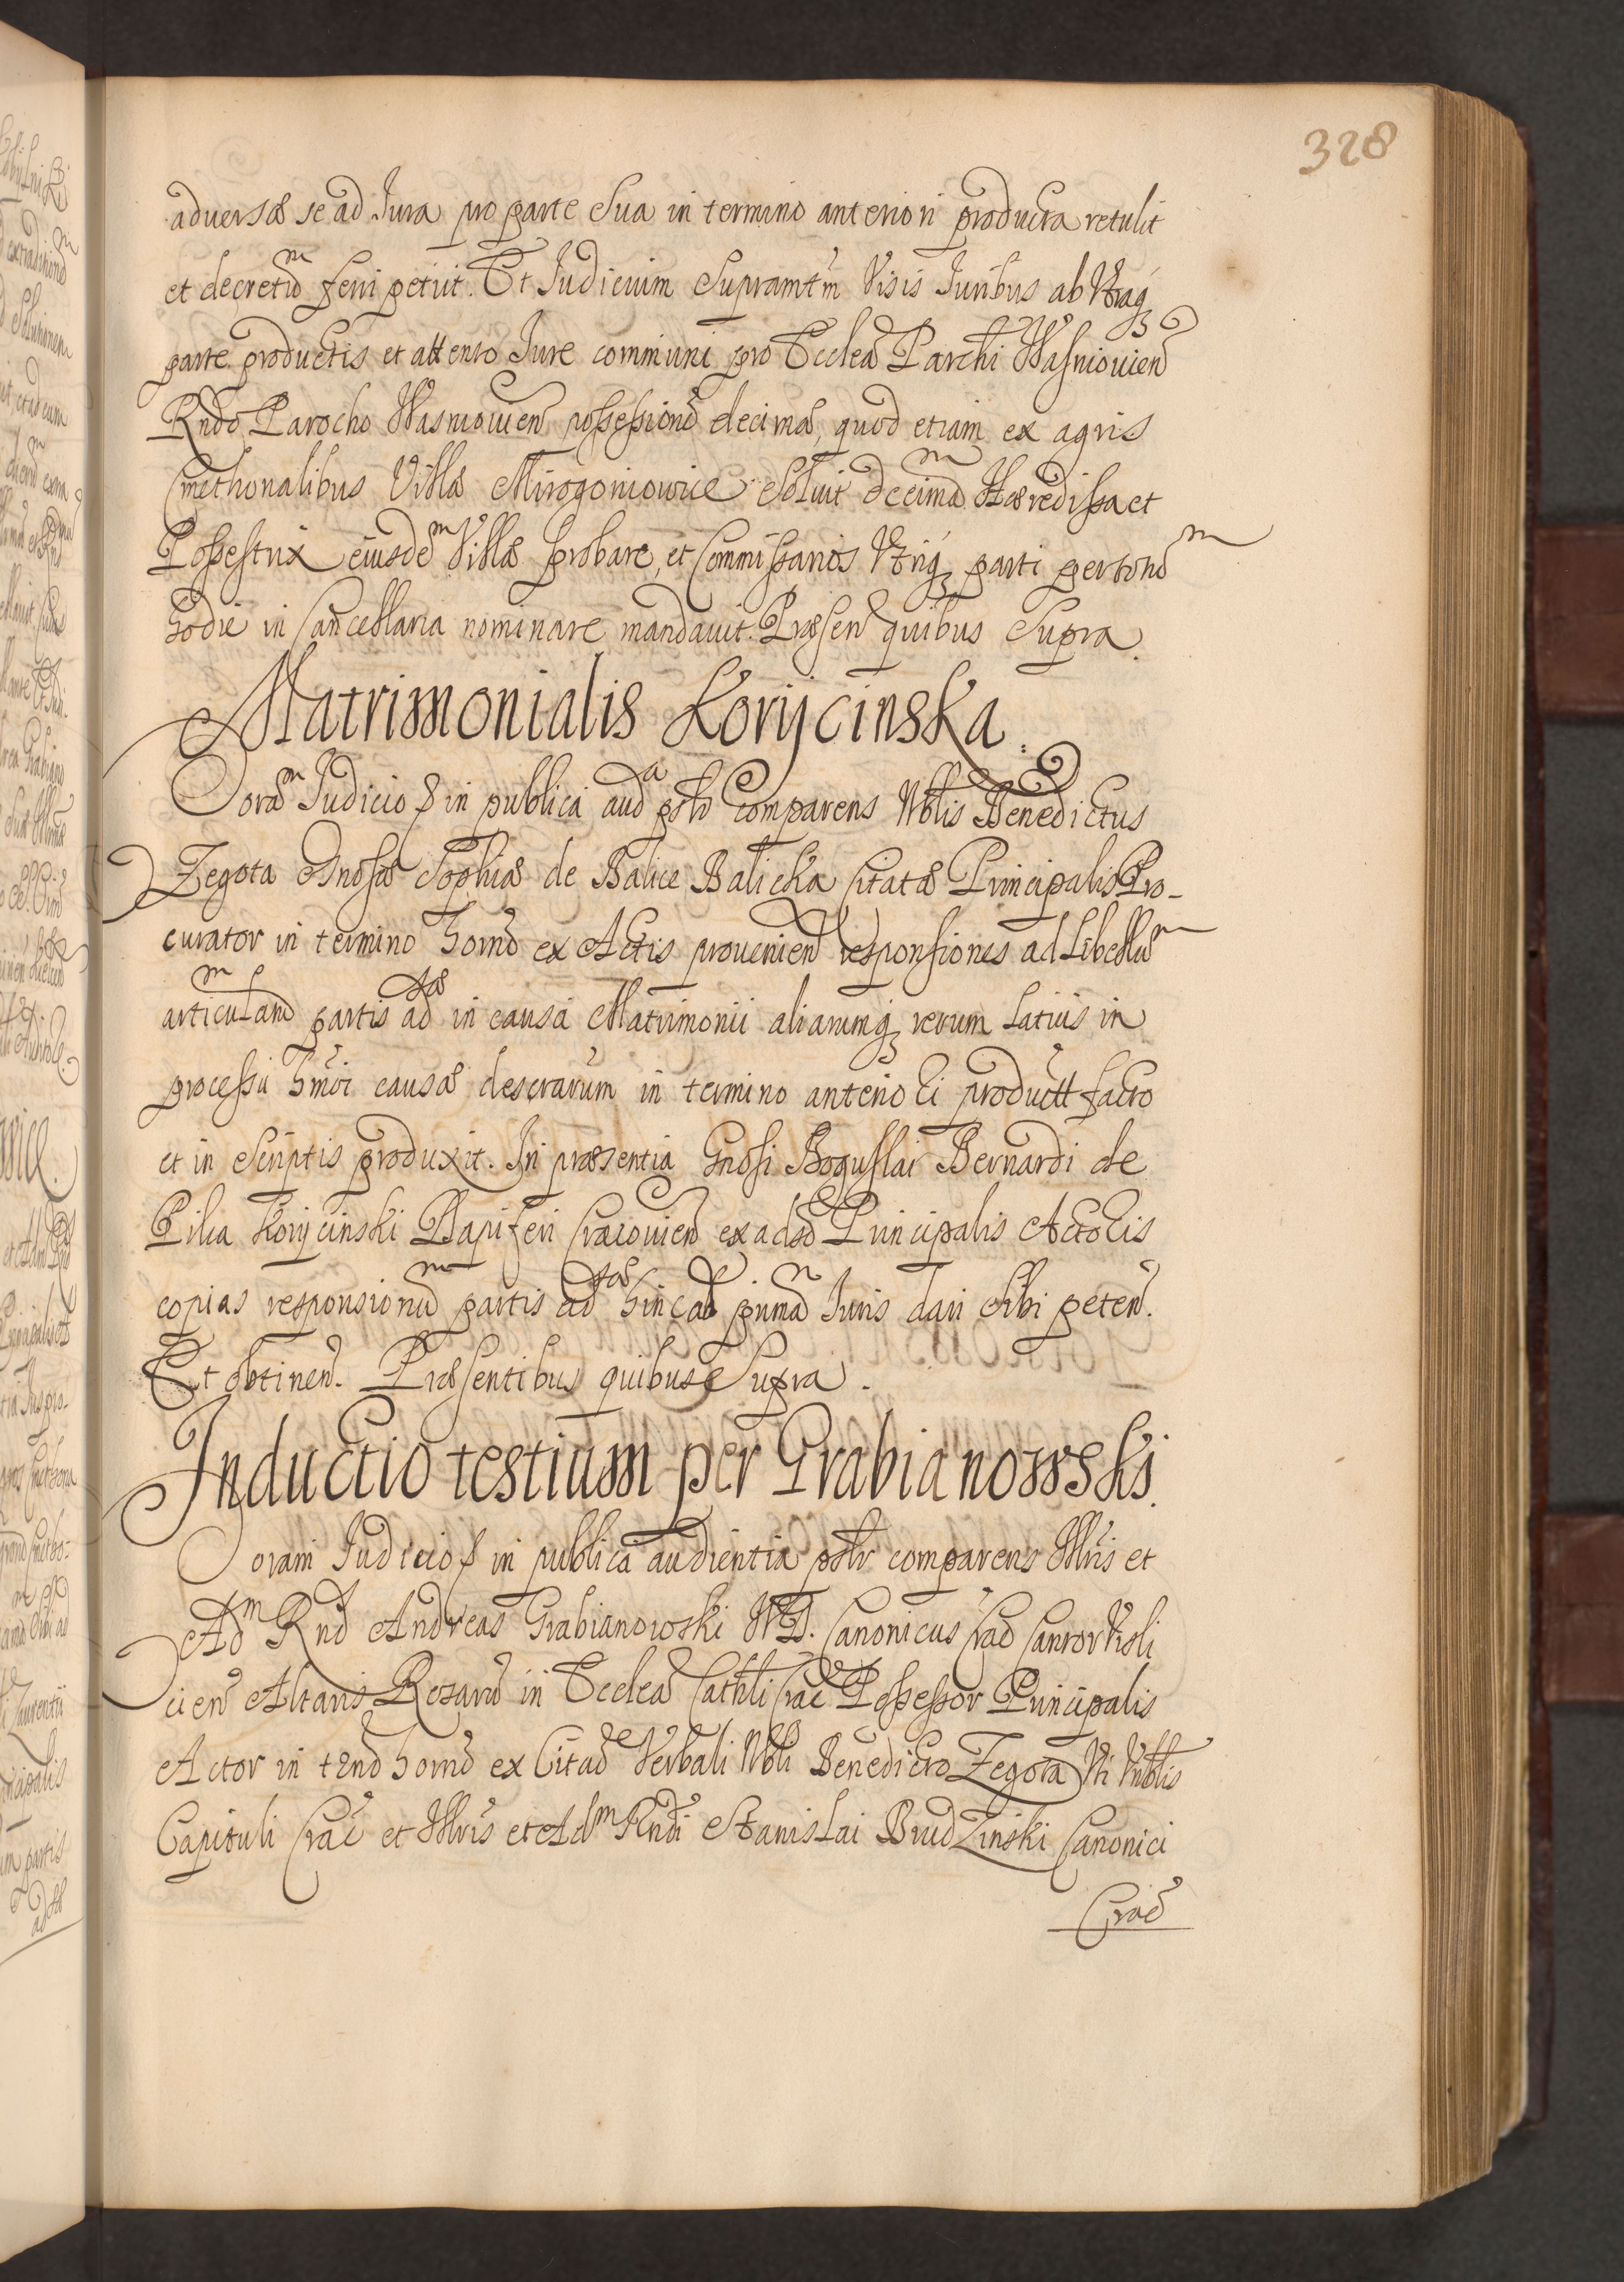 328
adversæ se ad Jura pro parte Sua in termino anteriori producta retulit
et decretũ ferri petiit. Et Judicium Supramt̃m Visis Juribus ab Vtraq
parte productis et attento Jure communi pro Ecclea Parchi Wasniovien
Rndo Parocho Wasniovien possessionẽ decimæ, quod etiam ex agris
Cmethonalibus Villæ Mirogoniowice Solvit decimã Hæredissa et
Possestrix eiusdẽ Villæ probare, et Commissarios Vtriq parti
hodie in Cancellaria nominare mandavit. Præsen quibus Supra.
Matrimonialis Korijcinska.
Corã Judicio in publica auda pstr comparens Nblis Benedictus
Zegota Gnosæ Sophiæ de Balice Balicka Citatæ Principalis Pro-
curator in termino horno ex Actis provenien responsiones ad Libellũ
articulam partis ad in causa Matrimonii aliarumq rerum Latius in
processu hmoi causæ descrarum in termino anterio Ei productt facto
et in Scriptis produxit. In præsentia Gnosi Boguslai Bernardi de
Pilca Korijcinski Dapiferi Cracovien ex adso Principalis Actoris
copias responsionũ partis ad hincad primã Juris dari Sibi peten.
Et obtinen. Præsentibus quibus Supra.
Inductio testium per Grabianowski.
Coram Judicio in publica audientia pstr comparens Illris et
Adm Rnd Andreas Grabianowski VD. Canonicus Crac Cantor Visli
cien Altaris Rosarü in Ecclea Cathli Crac Possessor Principalis
Actor in tẽno horno ex Citaoe Verbali Nbli Benedicto Zegota Vti Vnblis
Capituli Crac et Illris et Adm Rndi Stanislai BrudZinski Canonici
Crac